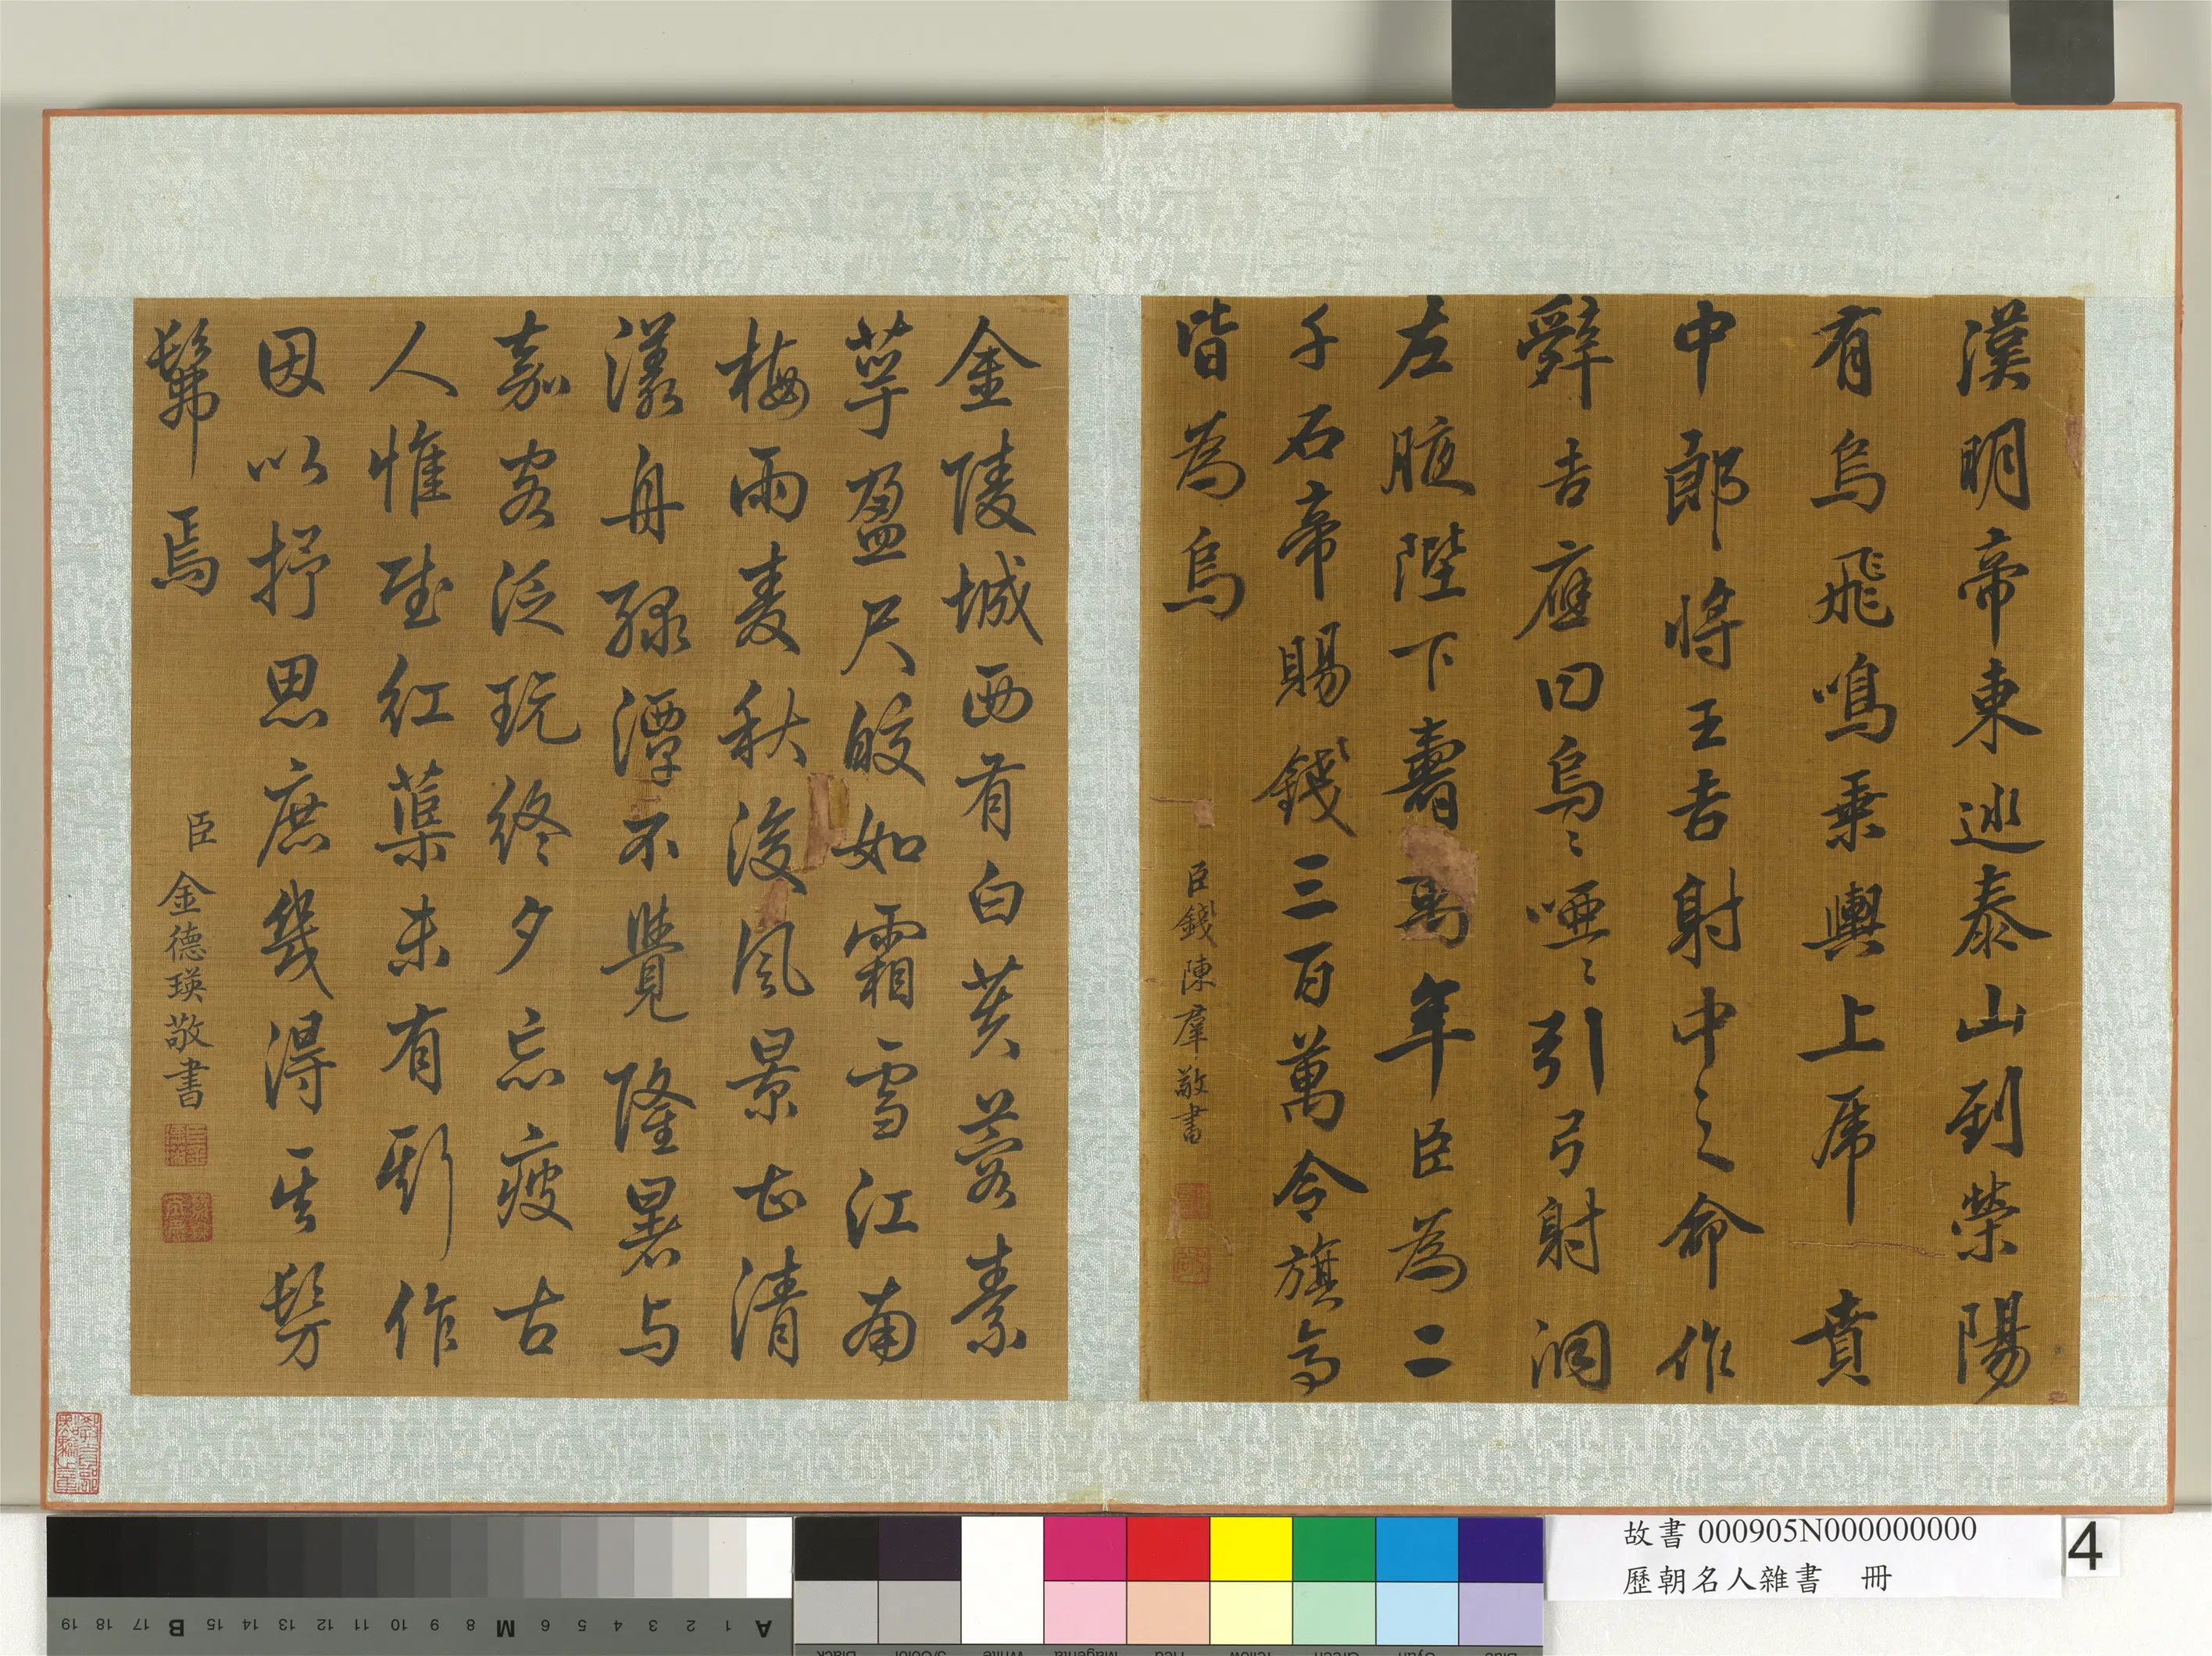 漢明帝東巡泰山到滎陽
有烏飛鳴乘輿上虎賁
中郎將王吉射中之命作
辭吉應曰烏〻啞〻引弓射洞
左腋陛下壽萬年臣為二
千石帝賜錢三百萬令旗亭
皆為烏
臣錢陳群敬書
金陵城西有白芙蓉素
萼盈尺皎如霜雪江南
梅雨麦秋後風景正清
漾舟綠潭不覺隆暑与
嘉客泛玩終夕忘疲古
人惟賦紅蕖未有斯作
因以抒思庶幾得其髣
髴焉
臣金德瑛敬書
故書 000905N000000000
歷朝名人雜書 冊
4
19 18 17 B 15 14 13 12 11 10 9 8 M 6 5 4 3 2 1 A
Black 3/Color White Magenta Red Yellow Green Cyan Blue